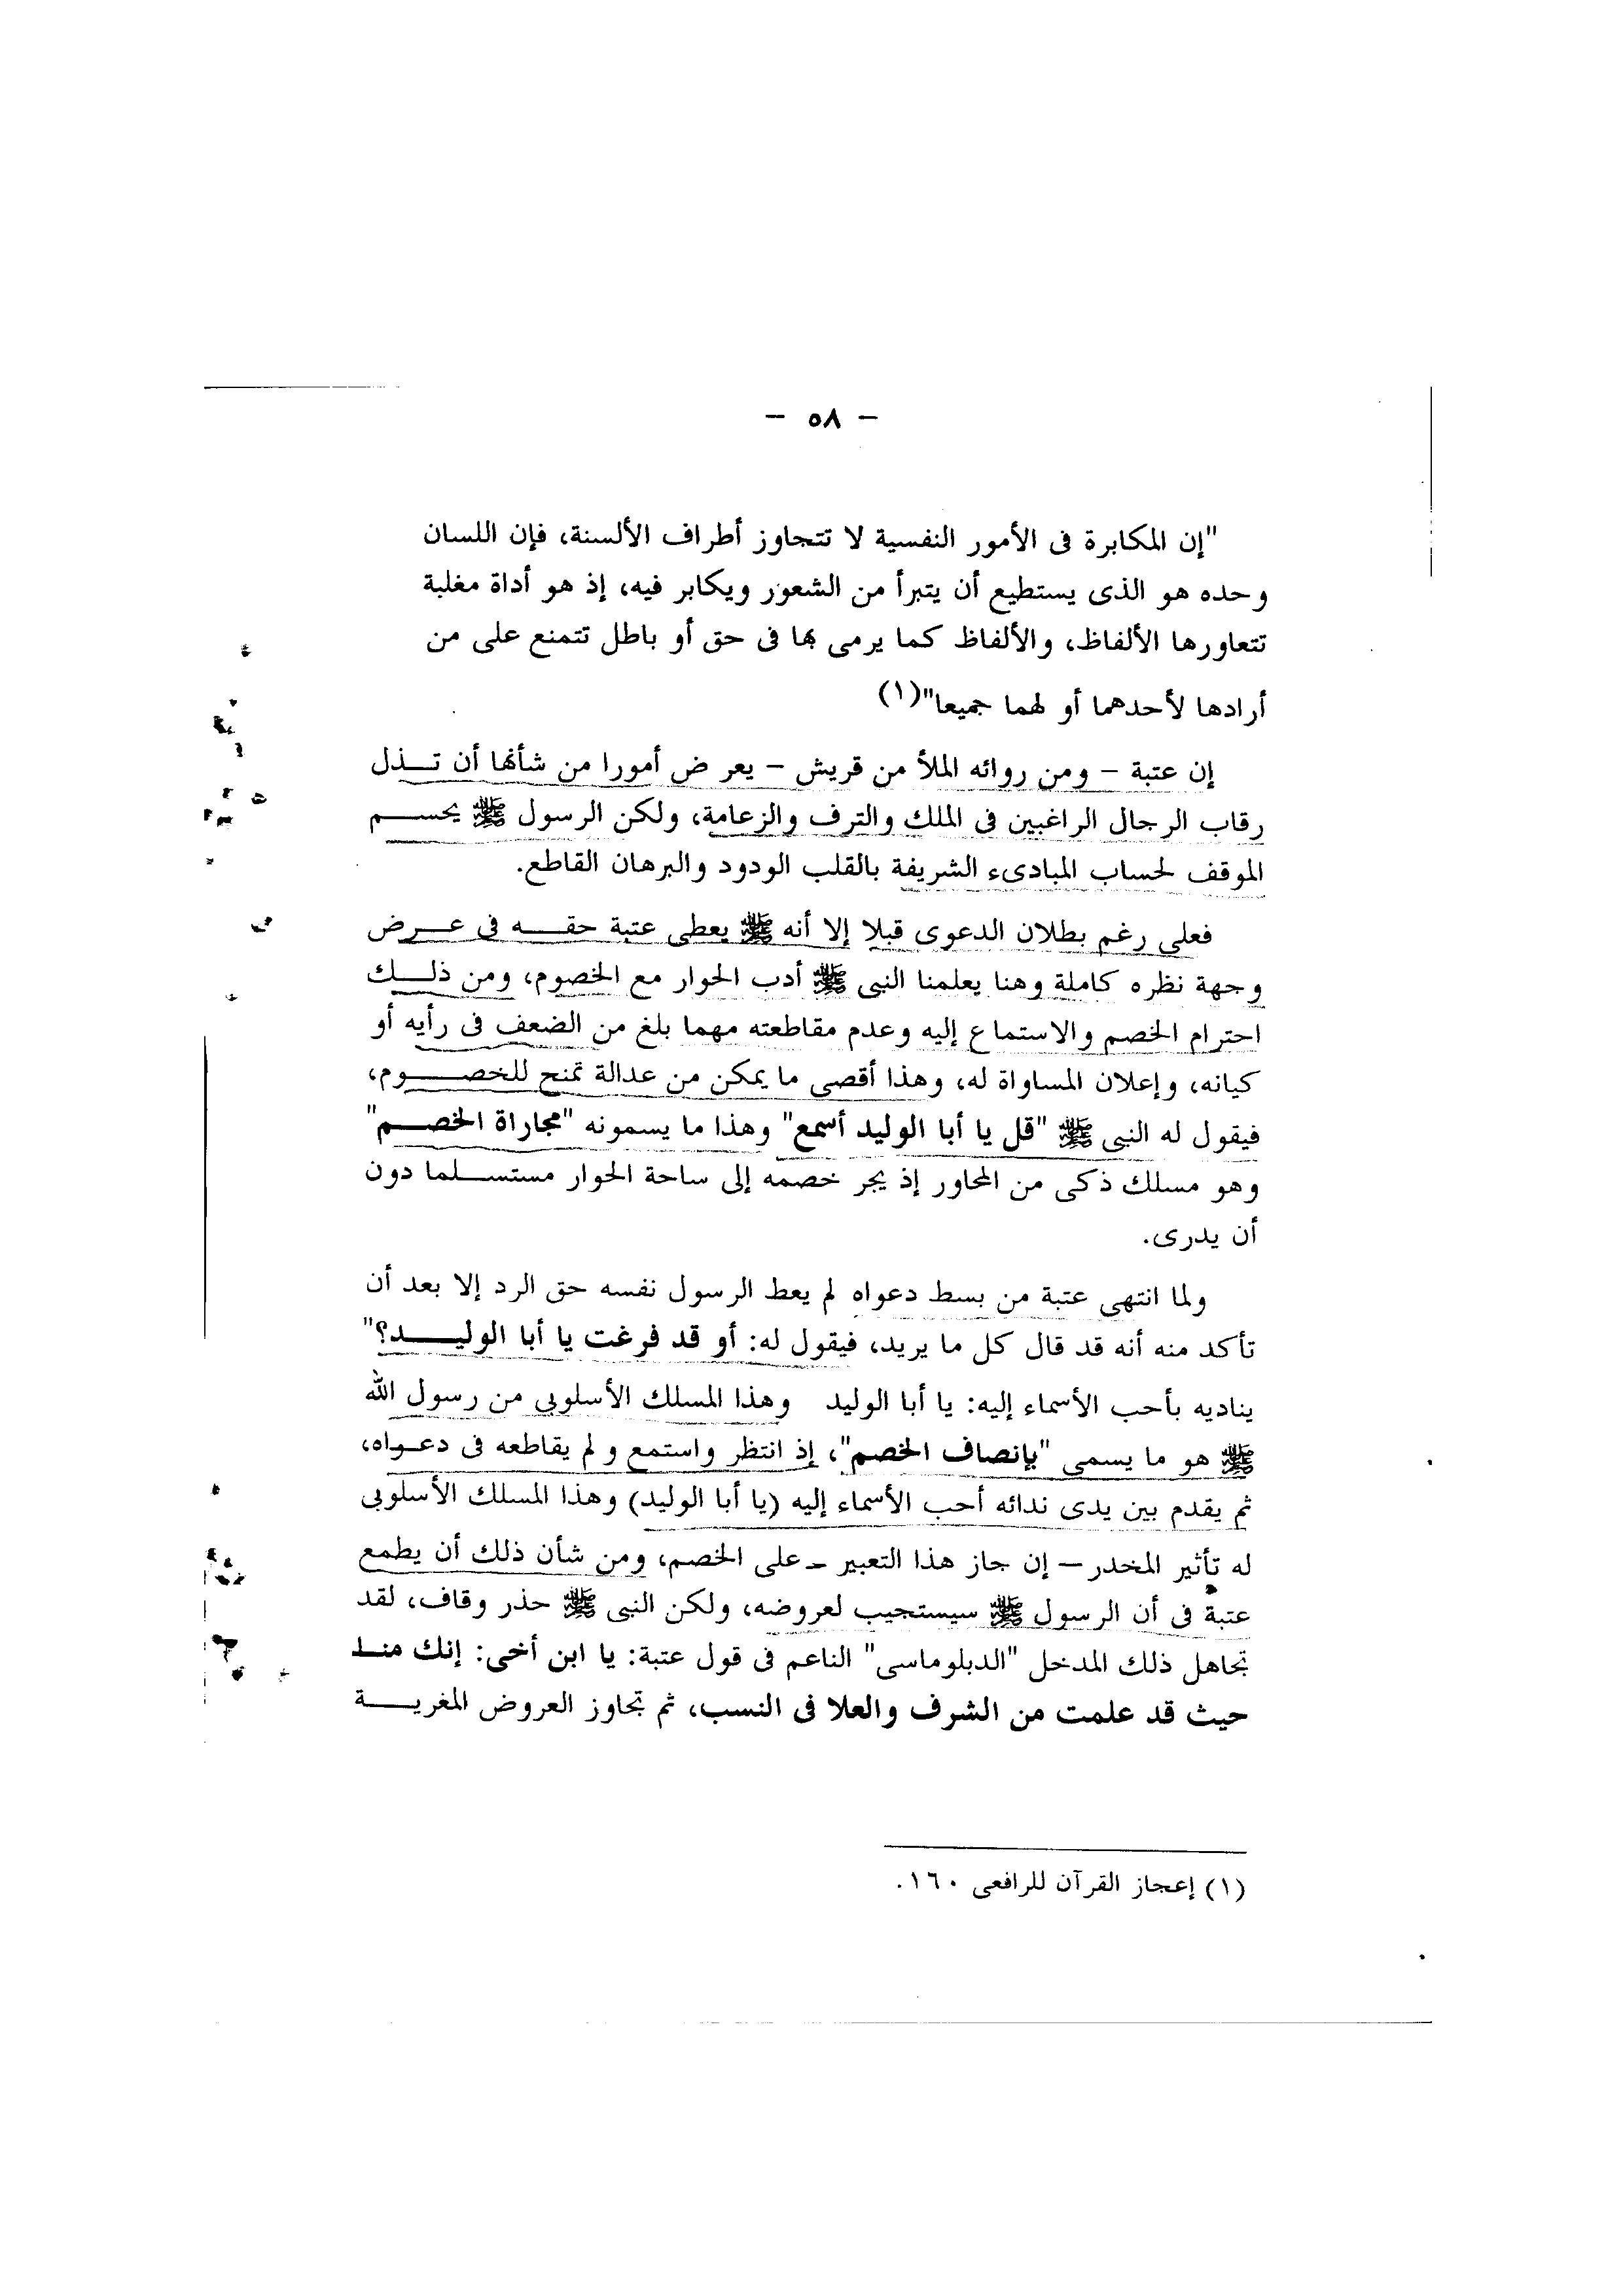 - ٥٨ -
"إن المكابرة فى الأمور النفسية لا تتجاوز أطراف الألسنة، فإن اللسان
وحده هو الذى يستطيع أن يتبرأ من الشعور ويكابر فيه، إذ هو أداة مغلبة
تتعاورها الألفاظ، والألفاظ كما يرمى بها فى حق أو باطل تتمنع على من
أرادها لأحدهما أو لهما جميعا"(١)
إن عتبة - ومن روائه الملأ من قريش - يعرض أمورا من شأنها أن تـــذل
رقاب الرجال الراغبين فى الملك والترف والزعامة، ولكن الرسول ﷺ يحســـم
الموقف لحساب المبادىء الشريفة بالقلب الودود والبرهان القاطع.
فعلى رغم بطلان الدعوى قبلا إلا أنه ﷺ يعطى عتبة حقـــه فى عـــرض
وجهة نظره كاملة وهنا يعلمنا النبى ﷺ أدب الحوار مع الخصوم، ومن ذلـــك
احترام الخصم والاستماع إليه وعدم مقاطعته مهما بلغ من الضعف فى رأيه أو
كيانه، وإعلان المساواة له، وهذا أقصى ما يمكن من عدالة تمنح للخصـــوم،
فيقول له النبى ﷺ "قل يا أبا الوليد أسمع" وهذا ما يسمونه "مجاراة الخصـــم"
وهو مسلك ذكى من المحاور إذ يجر خصمه إلى ساحة الحوار مستســـلما دون
أن يدرى.
ولما انتهى عتبة من بسط دعواه لم يعط الرسول نفسه حق الرد إلا بعد أن
تأكد منه أنه قد قال كل ما يريد، فيقول له: أو قد فرغت يا أبا الوليـــد؟"
يناديه بأحب الأسماء إليه: يا أبا الوليد وهذا المسلك الأسلوبى من رسول الله
ﷺ هو ما يسمى "بإنصاف الخصم"، إذ انتظر واستمع و لم يقاطعه فى دعـواه،
ثم يقدم بين يدى ندائه أحب الأسماء إليه (يا أبا الوليد) وهذا المسلك الأسلوبى
له تأثير المخدر - إن جاز هذا التعبير - على الخصم، ومن شأن ذلك أن يطمع
عتبة فى أن الرسول ﷺ سيستجيب لعروضه، ولكن النبى ﷺ حذر وقاف، لقد
تجاهل ذلك المدخل "الدبلوماسى" الناعم فى قول عتبة: يا ابن أخى: إنك منـــا
حيث قد علمت من الشرف والعلا فى النسب، ثم تجاوز العروض المغريـــة
(١) إعجاز القرآن للرافعى ١٦٠.